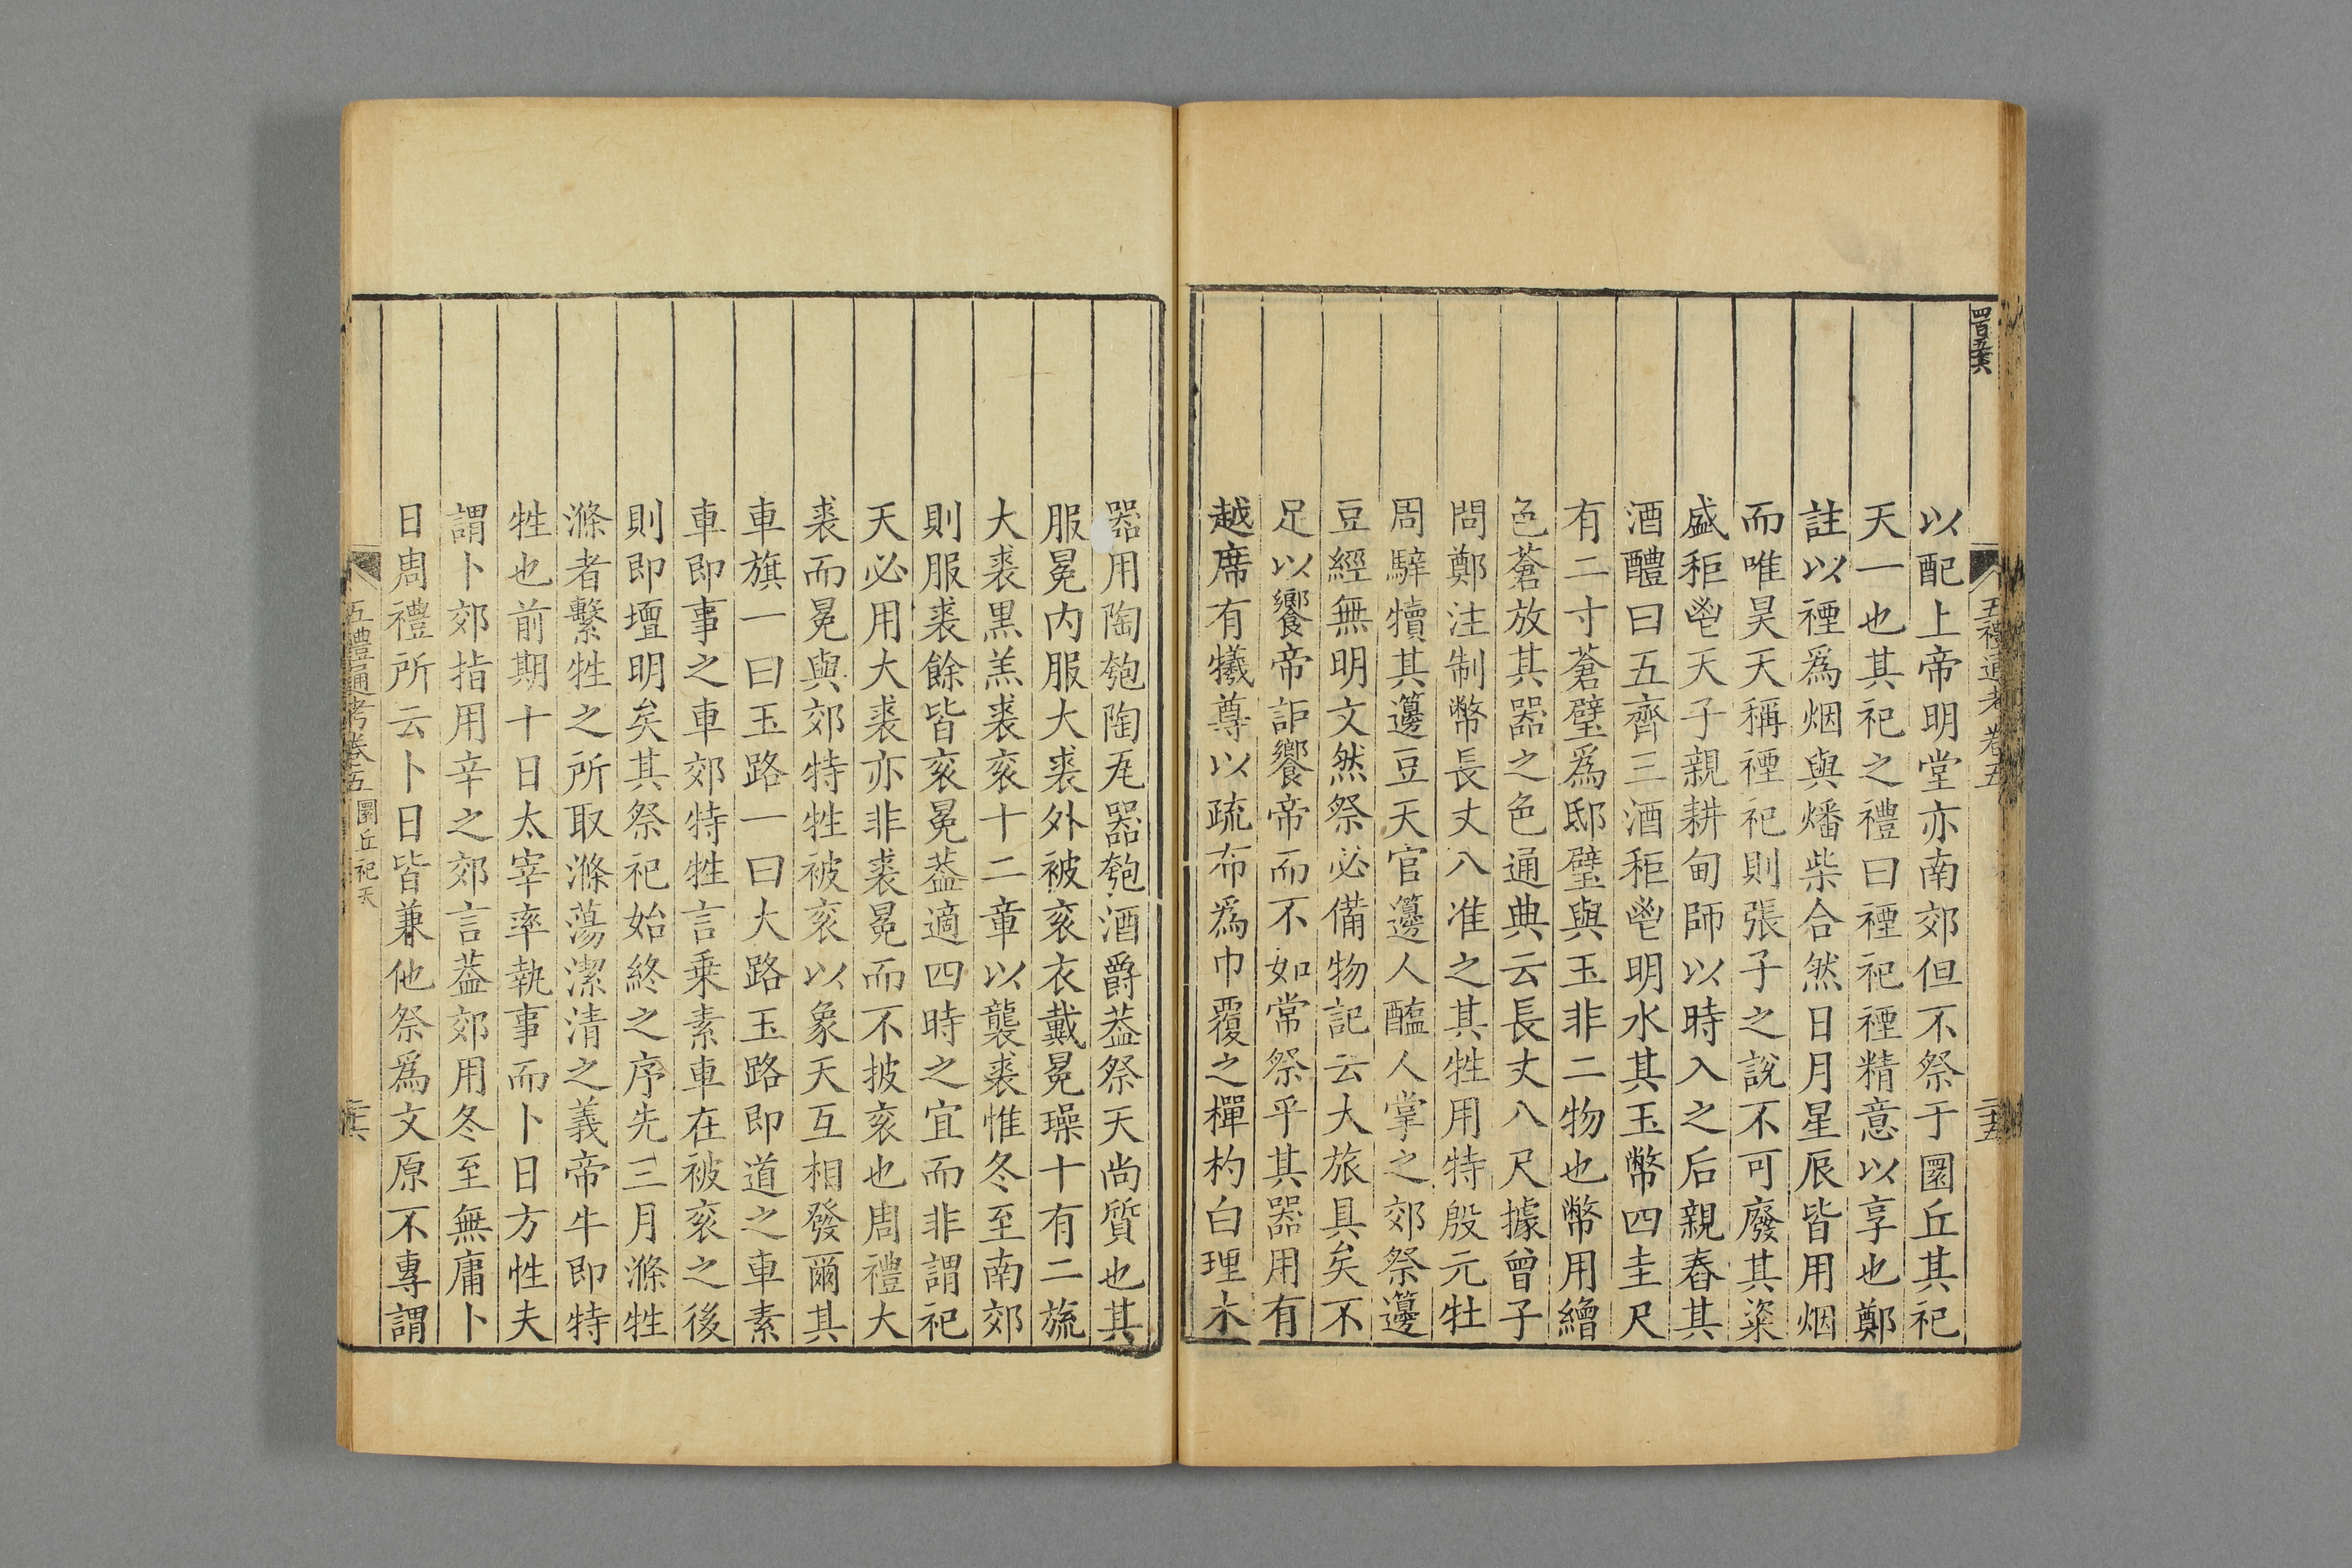 五禮通考卷五
二十五
以配上帝明堂亦南郊但不祭于圜丘其祀
天一也其祀之禮曰禋祀禋精意以享也鄭
註以禋爲烟與燔柴合然日月星辰皆用烟
而唯昊天稱禋祀則張子之說不可廢其粢
盛秬鬯天子親耕甸師以時入之后親舂其
酒醴曰五齊三酒秬鬯明水其玉幣四圭尺
有二寸蒼璧爲邸璧與玉非二物也幣用繒
色蒼放其器之色通典云長丈八尺據曾子
問鄭注制幣長丈八准之其牲用特殷元牡
周騂犢其籩豆天官籩人醢人掌之郊祭籩
豆經無明文然祭必備物記云大旅具矣不
足以饗帝詎饗帝而不如常祭乎其器用有
越席有犧尊以疏布爲巾覆之樿杓白理木
器用陶匏陶瓦器匏酒爵葢祭天尚質也其
服冕内服大裘外被衮衣戴冕璪十有二旒
大裘黑羔裘衮十二章以襲裘惟冬至南郊
則服裘餘皆衮冕葢適四時之宜而非謂祀
天必用大裘亦非裘冕而不披衮也周禮大
裘而冕與郊特牲被衮以象天互相發爾其
車旗一曰玉路一曰大路玉路即道之車素
車即事之車郊特牲言乗素車在被衮之後
則即壇明矣其祭祀始終之序先三月滌牲
滌者繫牲之所取滌蕩潔清之義帝牛即特
牲也前期十日太宰率執事而卜日方性夫
謂卜郊指用辛之郊言葢郊用冬至無庸卜
日周禮所云卜日皆兼他祭爲文原不專謂
五禮通考卷五 圜丘祀天
二十六